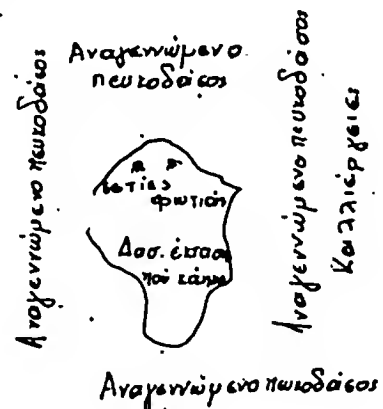 Αναγεννώμενο
πευκοδάσος
Αναγεννώμενο πευκοδάσος
Αναγεννώμενο πευκοδάσος
Καλλιέργειες
εστίες
φωτιάς
Δασ. έκταση
πού κάηκε
Αναγεννώμενο πευκοδάσος